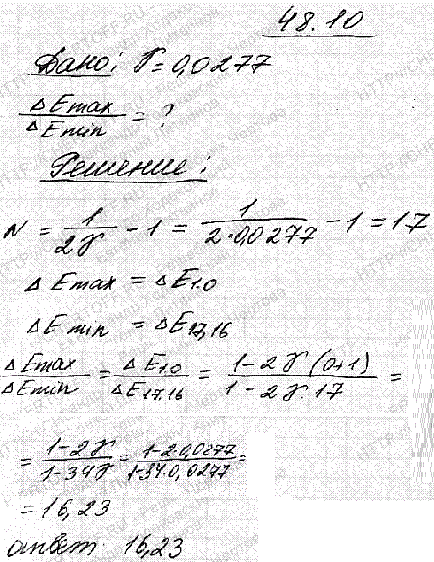 48.10
Дано: γ = 0,0277
ΔEmax / ΔEmin = ?
Решение:
N = 1 / 2γ - 1 = 1 / 2·0,0277 - 1 = 17
ΔEmax = ΔE1.0
ΔEmin = ΔE17,16
ΔEmax / ΔEmin = ΔE1.0 / ΔE17,16 = 1-2γ(0+1) / 1-2γ·17 =
= 1-2γ / 1-34γ = 1-2·0,0277 / 1-34·0,0277 =
= 16,23
ответ: 16,23